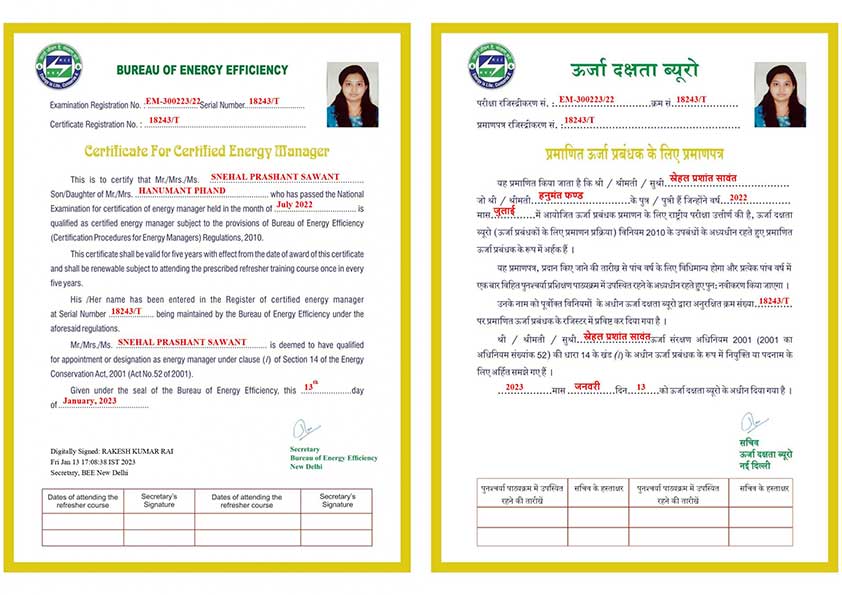 BUREAU OF ENERGY EFFICIENCY
Examination Registration No. : EM-300223/22 Serial Number 18243/T
Certificate Registration No. : 18243/T
Certificate For Certified Energy Manager
This is to certify that Mr./Mrs./Ms. SNEHAL PRASHANT SAWANT
Son/Daughter of Mr./Mrs. HANUMANT PHAND who has passed the National
Examination for certification of energy manager held in the month of July 2022 is
qualified as certified energy manager subject to the provisions of Bureau of Energy Efficiency
(Certification Procedures for Energy Managers) Regulations, 2010.
This certificate shall be valid for five years with effect from the date of award of this certificate
and shall be renewable subject to attending the prescribed refresher training course once in every
five years.
His /Her name has been entered in the Register of certified energy manager
at Serial Number 18243/T being maintained by the Bureau of Energy Efficiency under the
aforesaid regulations.
Mr./Mrs./Ms. SNEHAL PRASHANT SAWANT is deemed to have qualified
for appointment or designation as energy manager under clause (l) of Section 14 of the Energy
Conservation Act, 2001 (Act No.52 of 2001).
Given under the seal of the Bureau of Energy Efficiency, this 13th day
of January, 2023
Digitally Signed: RAKESH KUMAR RAI
Fri Jan 13 17:08:38 IST 2023
Secretary, BEE New Delhi
Secretary
Bureau of Energy Efficiency
New Delhi
Dates of attending the refresher course Secretary's Signature Dates of attending the refresher course Secretary's Signature
ऊर्जा दक्षता ब्यूरो
परीक्षा रजिस्ट्रीकरण सं. : EM-300223/22 क्रम सं. 18243/T
प्रमाणपत्र रजिस्ट्रीकरण सं. : 18243/T
प्रमाणित ऊर्जा प्रबंधक के लिए प्रमाणपत्र
यह प्रमाणित किया जाता है कि श्री / श्रीमती / सुश्री. स्नेहल प्रशांत सावंत
जो श्री / श्रीमती हनुमंत फण्ड के पुत्र / पुत्री हैं जिन्होंने वर्ष 2022
मास जुलाई में आयोजित ऊर्जा प्रबंधक प्रमाणन के लिए राष्ट्रीय परीक्षा उत्तीर्ण की है, ऊर्जा दक्षता
ब्यूरो (ऊर्जा प्रबंधकों के लिए प्रमाणन प्रक्रिया) विनियम 2010 के उपबंधों के अध्यधीन रहते हुए प्रमाणित
ऊर्जा प्रबंधक के रूप में अर्हक हैं ।
यह प्रमाणपत्र, प्रदान किए जाने की तारीख से पांच वर्ष के लिए विधिमान्य होगा और प्रत्येक पांच वर्ष में
एक बार विहित पुनश्चर्या प्रशिक्षण पाठ्यक्रम में उपस्थित रहने के अध्यधीन रहते हुए पुन: नवीकरण किया जाएगा ।
उनके नाम को पूर्वोक्त विनियमों के अधीन ऊर्जा दक्षता ब्यूरो द्वारा अनुरक्षित क्रम संख्या 18243/T
पर प्रमाणित ऊर्जा प्रबंधक के रजिस्टर में प्रविष्ट कर दिया गया है ।
श्री / श्रीमती / सुश्री. स्नेहल प्रशांत सावंत ऊर्जा संरक्षण अधिनियम 2001 (2001 का
अधिनियम संख्यांक 52) की धारा 14 के खंड (l) के अधीन ऊर्जा प्रबंधक के रूप में नियुक्ति या पदनाम के
लिए अर्हित समझे गए हैं ।
2023 मास जनवरी दिन 13 को ऊर्जा दक्षता ब्यूरो के अधीन दिया गया है ।
सचिव
ऊर्जा दक्षता ब्यूरो
नई दिल्ली
पुनश्चर्या पाठ्यक्रम में उपस्थित रहने की तारीखें सचिव के हस्ताक्षर पुनश्चर्या पाठ्यक्रम में उपस्थित रहने की तारीखें सचिव के हस्ताक्षर